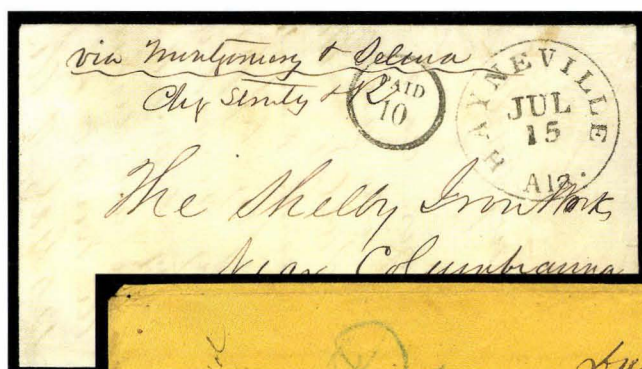 via Montgomery & Selma
Chg Smith & Co
PAID
10
HAYNEVILLE
JUL
15
Ala.
The Shelby Iron Works
Near Columbianna